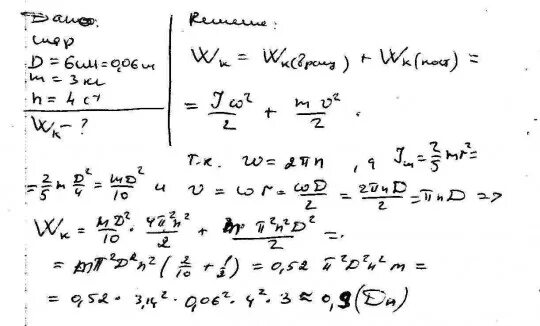 Дано:
шар
D = 6см = 0,06м
m = 3 кг
n = 4 с⁻¹
Wₖ - ?
Решение:
Wₖ = Wₖ(вращ) + Wₖ(пост) =
= Jω²/2 + mv²/2.
т.к. ω = 2πn, а Jш = 2/5 mr² =
= 2/5 m D²/4 = mD²/10 и v = ωr = ωD/2 = 2πnD/2 = πnD =>
Wₖ = mD²/10 · 4π²n²/2 + m π²n²D²/2 =
= mπ²D²n² (2/10 + 1/2) = 0,52 π²D²n² m =
= 0,52 · 3,14² · 0,06² · 4² · 3 ≈ 0,9 (Дж)